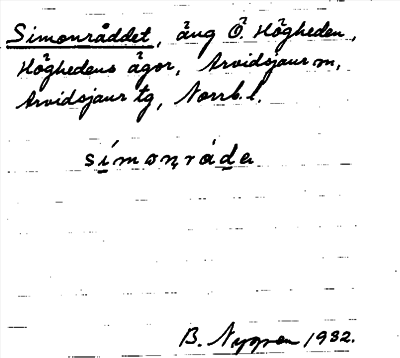 Simonråddet, äng Ö. Högheden,
Höghedens ägor, Arvidsjaur m,
Arvidsjaur tg, Norrb. l.
símoṇrádeː
B. Nyman 1932.